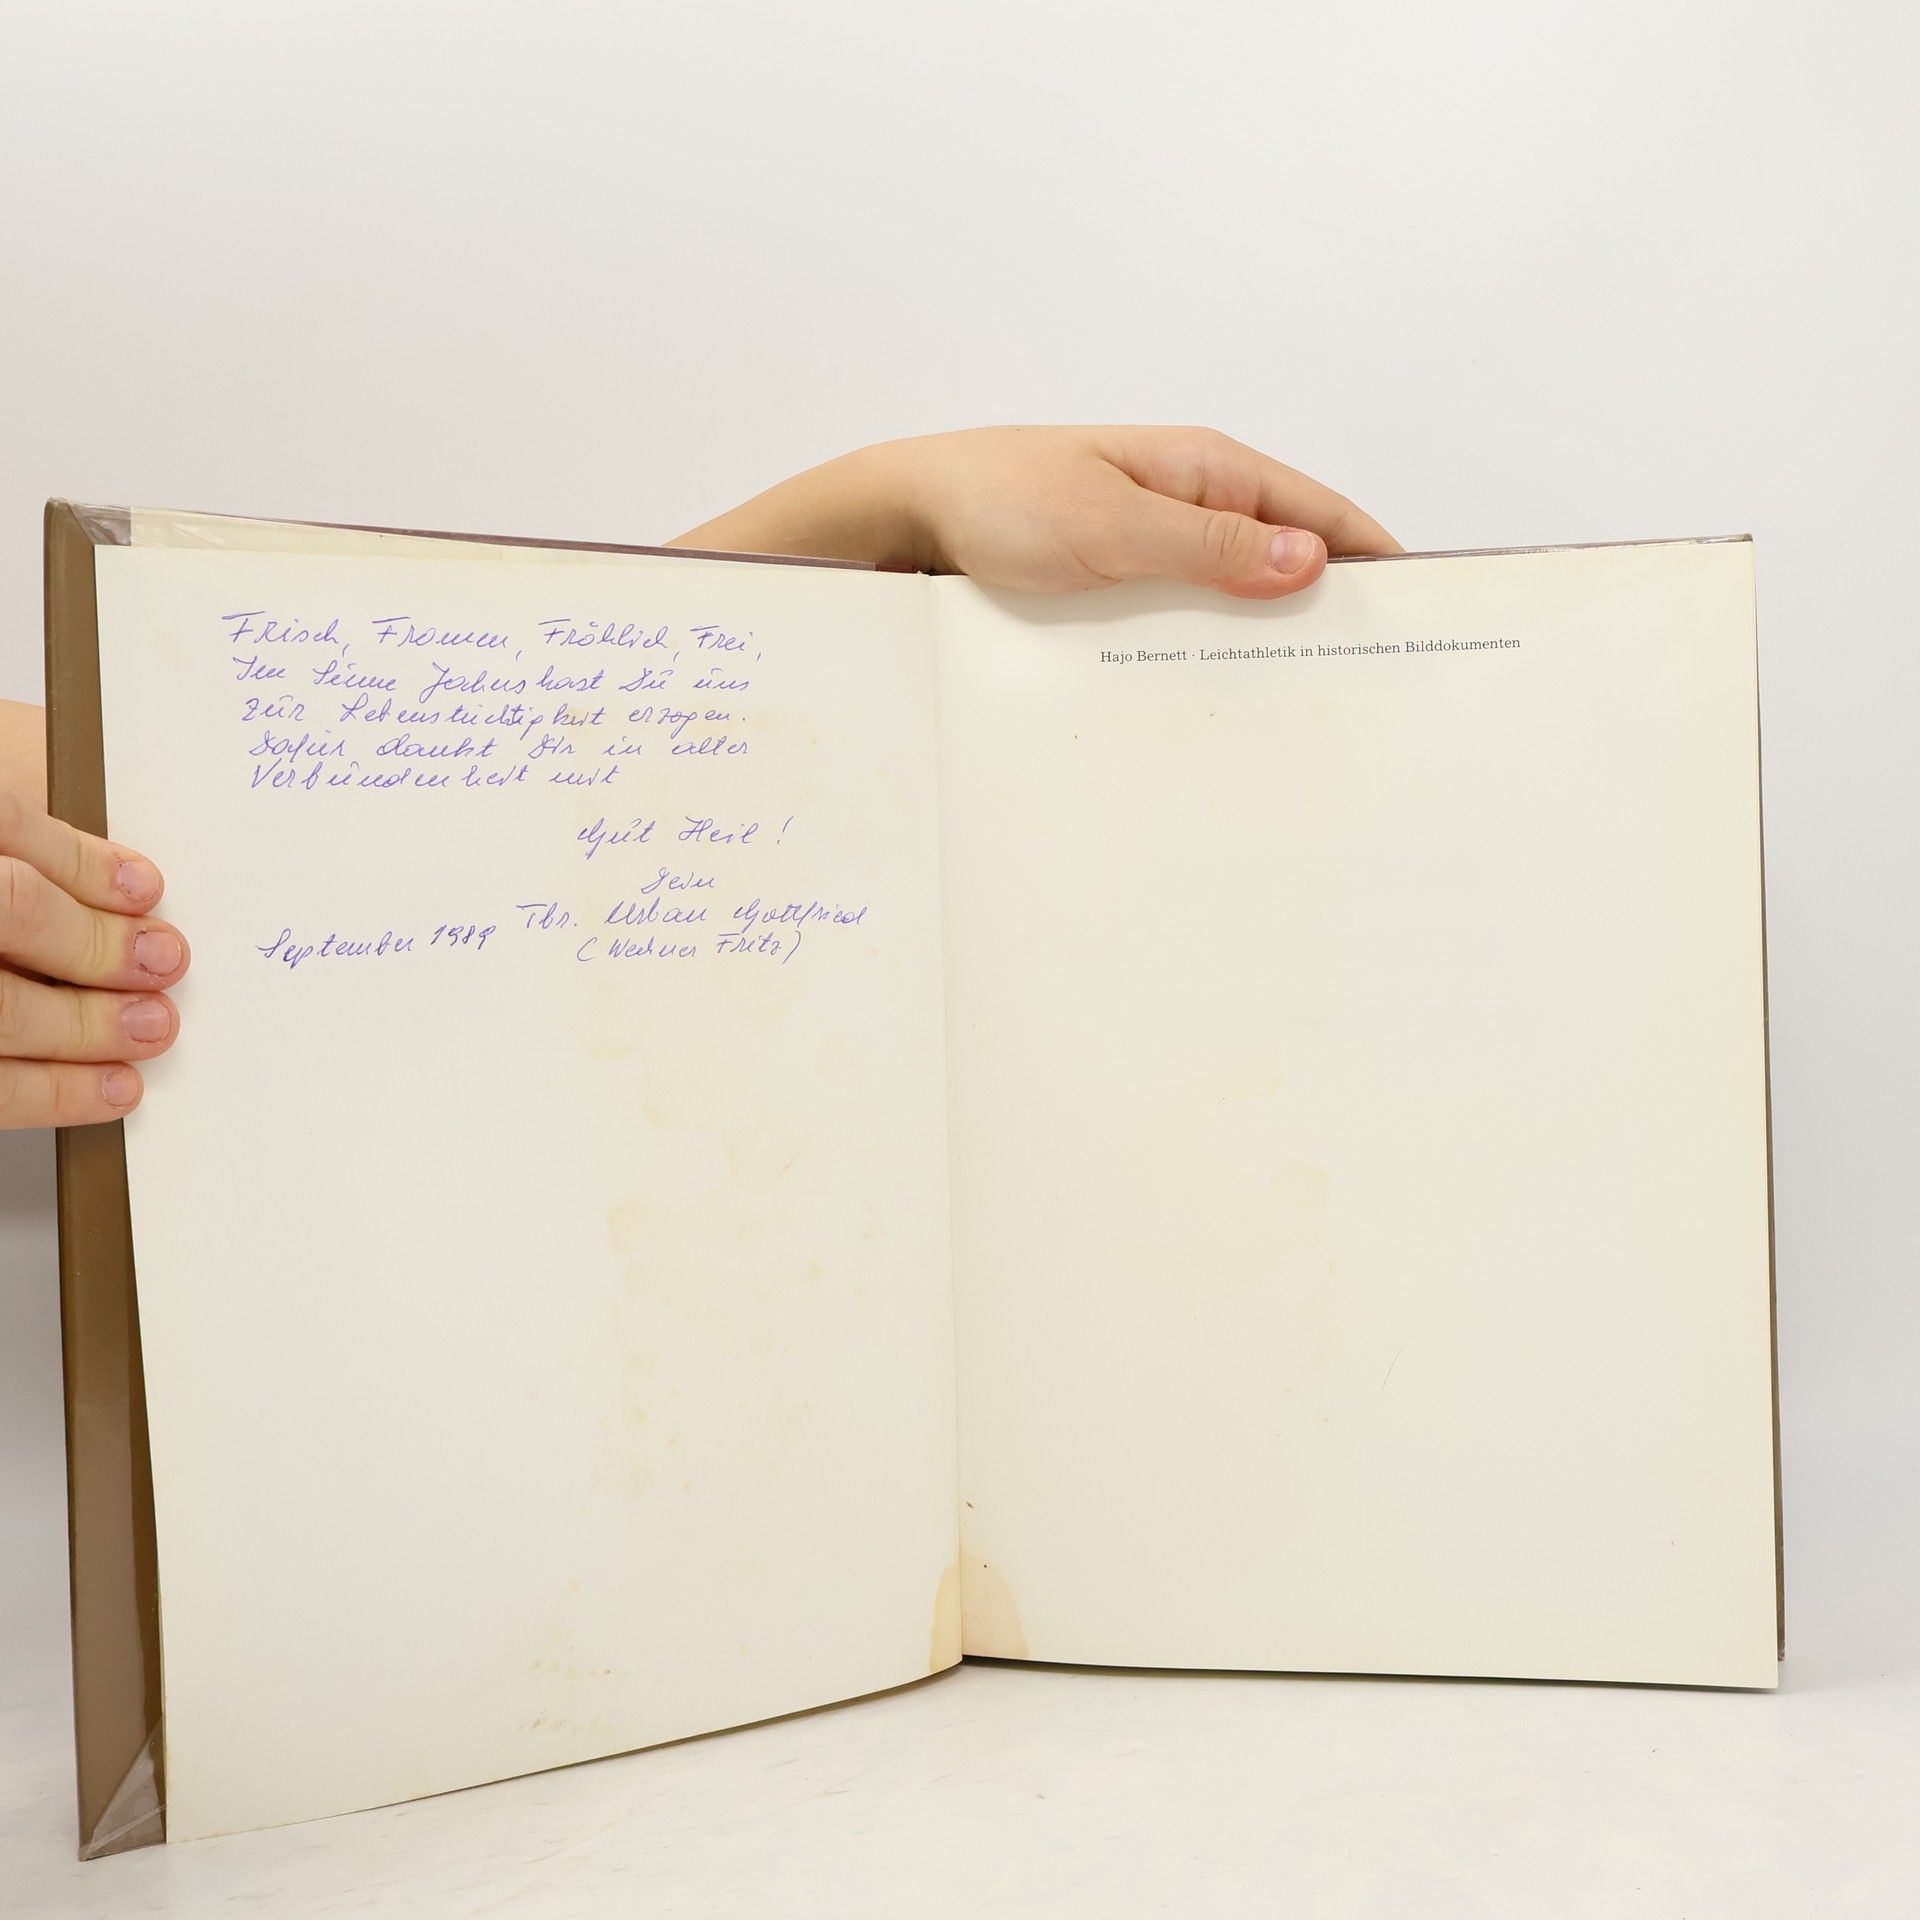 Frisch, Fromm, Fröhlich, Frei,
Im Sinne Jahns hast Dū ūns
zūr Lebenstüchtigkeit erzogen.
Dafür dankt Dir in alter
Verbūndenheit mit
Gūt Heil!
Dein
Tbr. Urban Gottfried
(Werner Fritz)
September 1989
Hajo Bernett · Leichtathletik in historischen Bilddokumenten